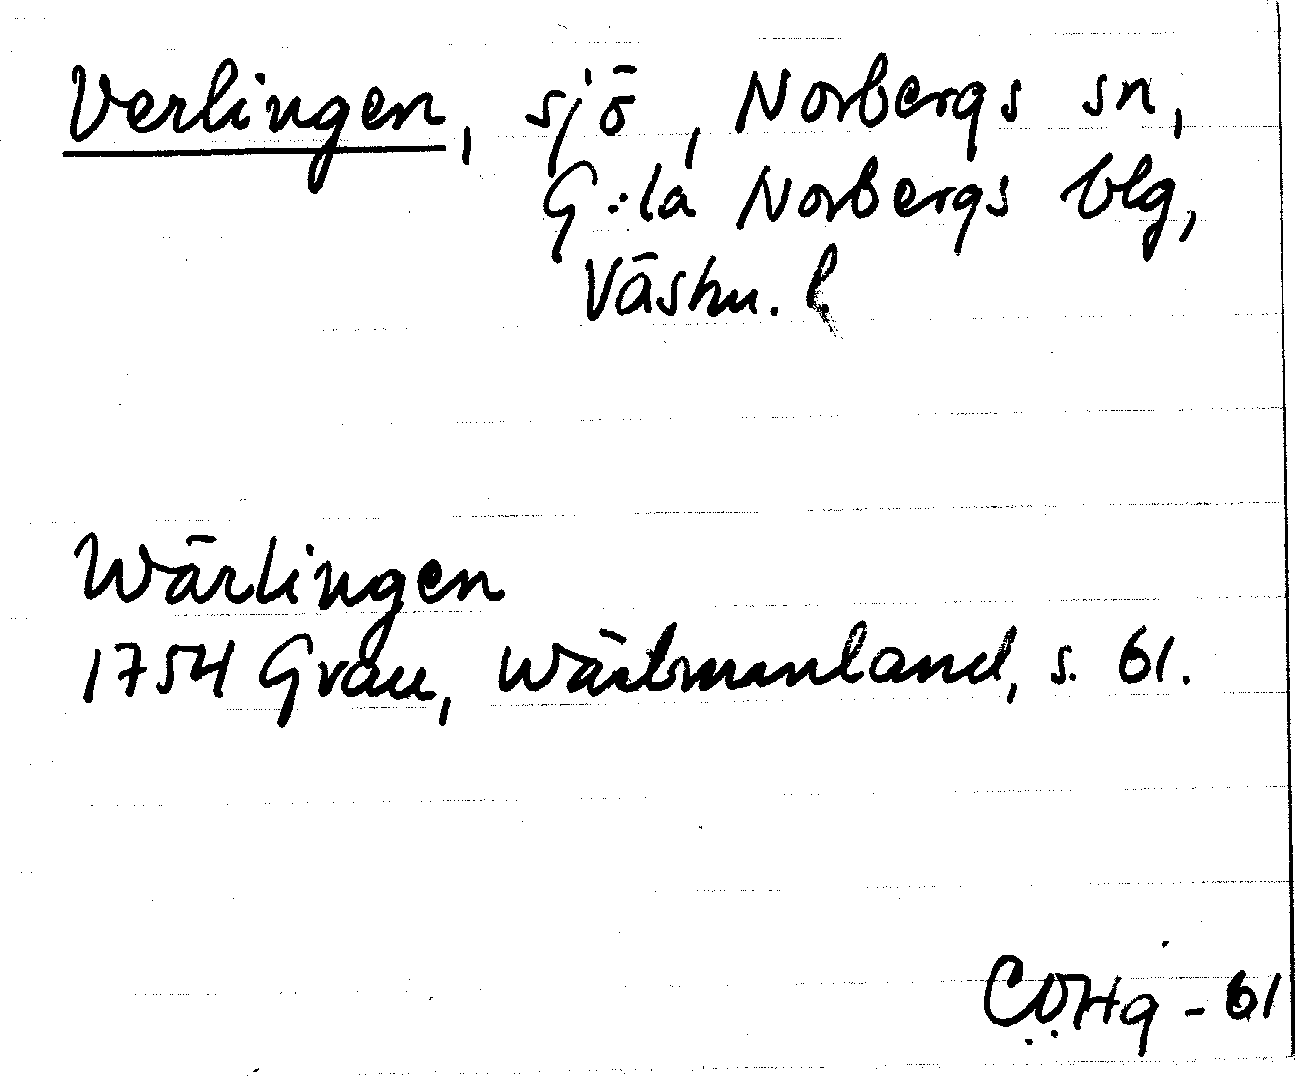 Verlingen, sjö, Norbergs sn,
G:la Norbergs blg,
Västm. l.
Wärlingen
1754 Grau, Wästmanland, s. 61.
COHg - 61